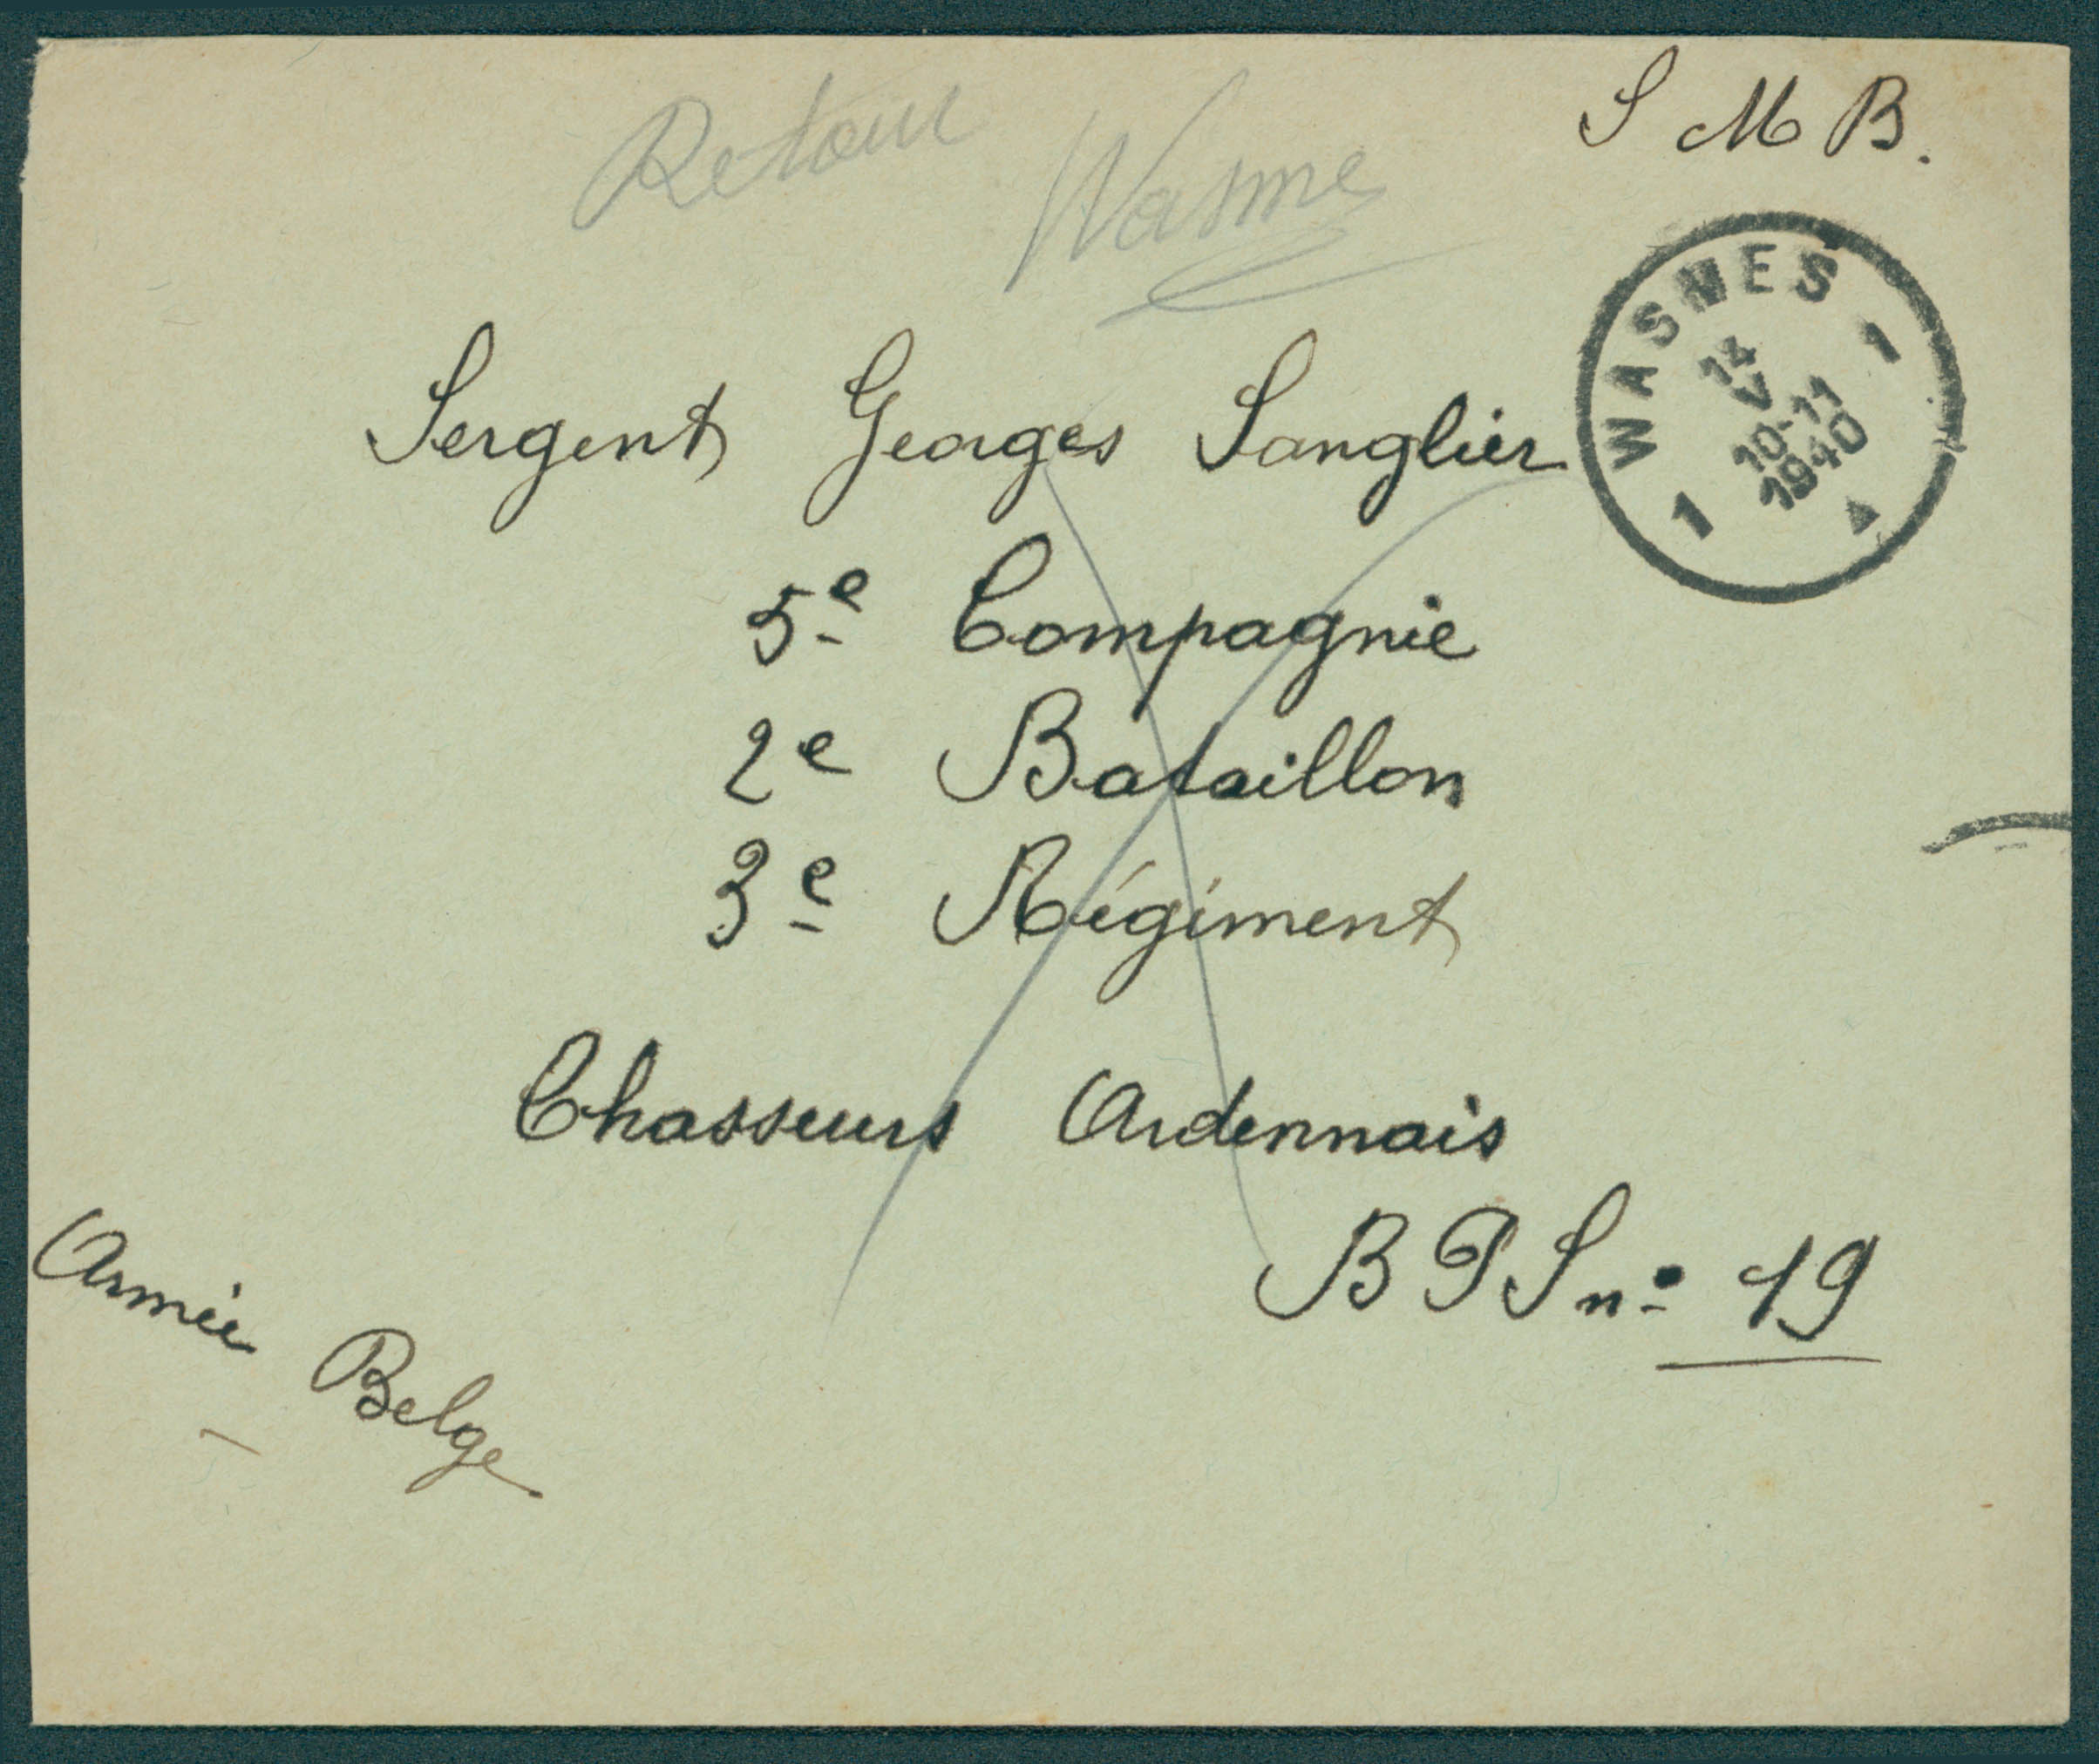 S M B.
Retour Wasme
WASMES
1 1
14
V
10-11
1940
Sergent Georges Sanglier
5e Compagnie
2e Bataillon
3e Régiment
Chasseurs Ardennais
B P S nº 19
Armée Belge